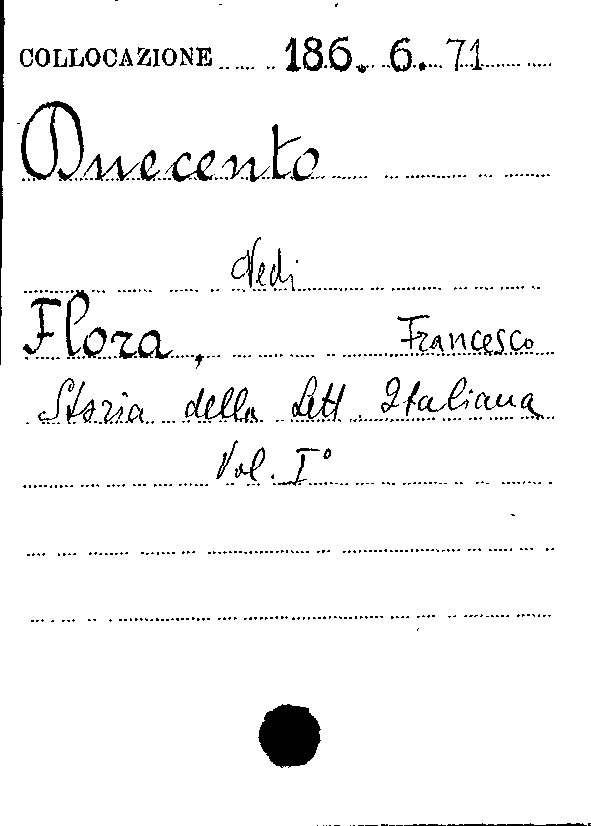 COLLOCAZIONE 186. 6. 71
Duecento
Vedi
Flora, Francesco
Storia della Lett. Italiana
Vol. I°